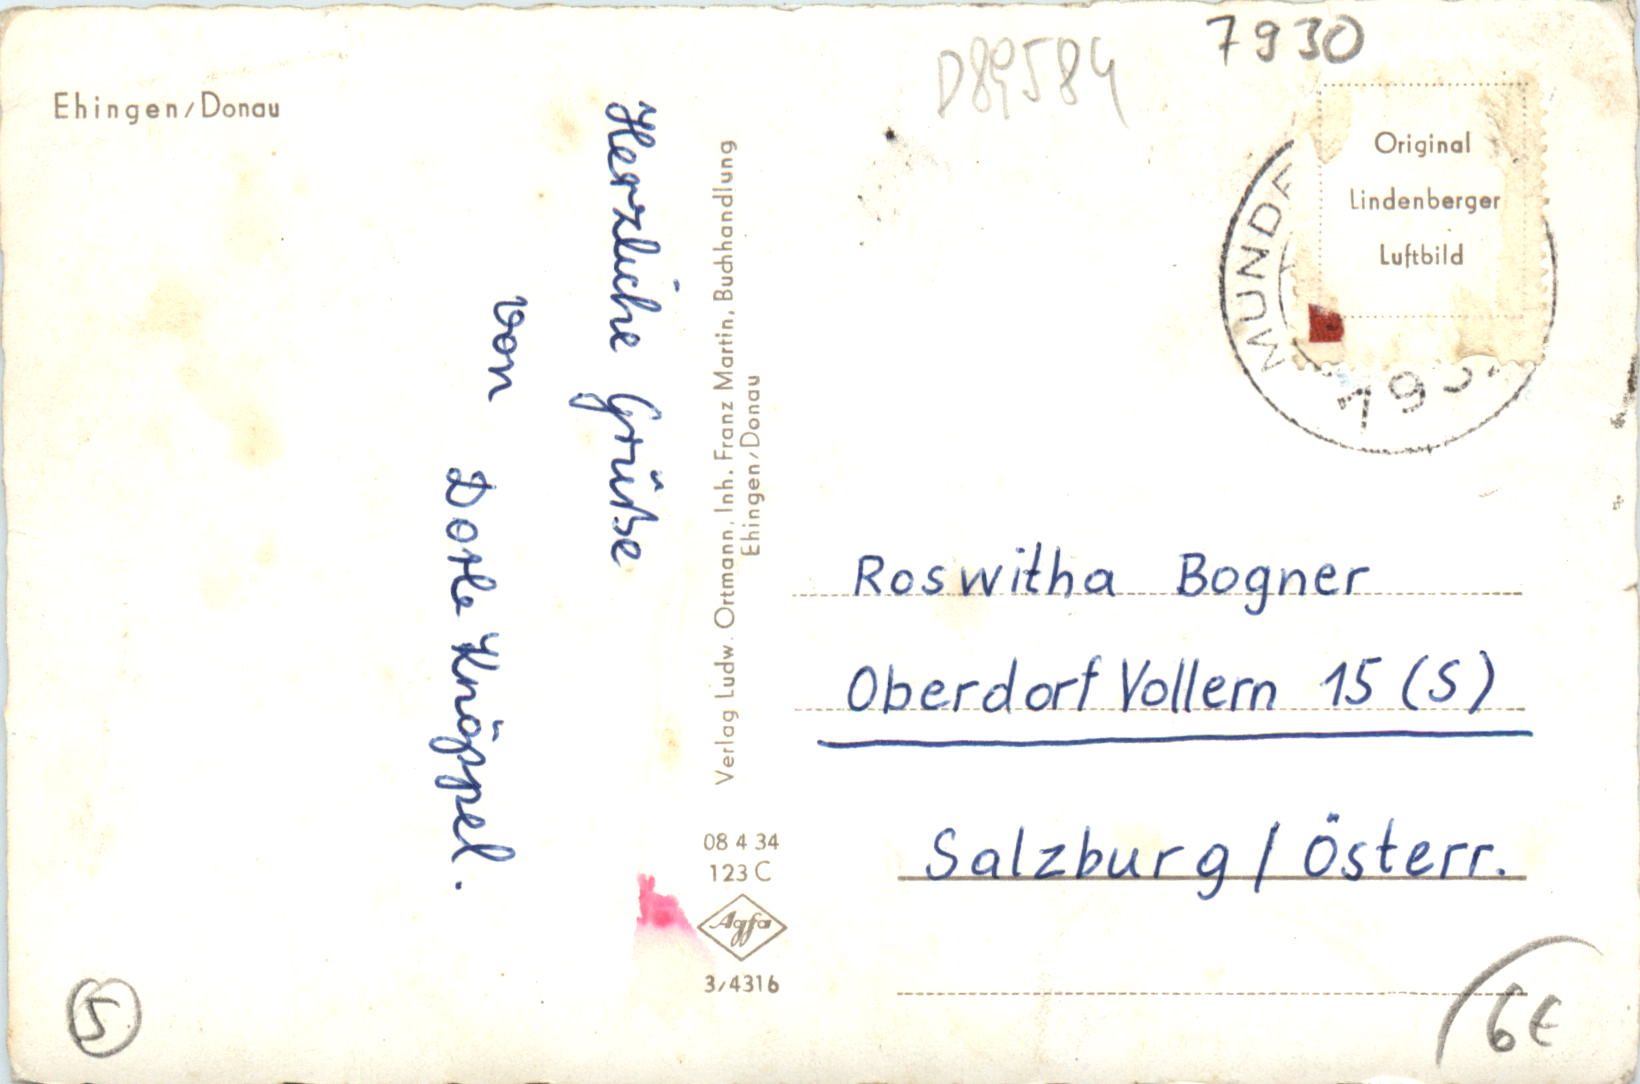 7930
D89584
Ehingen/Donau
Original
Lindenberger
Luftbild
Herzliche Grüße
von
Dorle Knöppel.
Verlag Ludw. Ortmann, Inh. Franz Martin, Buchhandlung
Ehingen/Donau
Roswitha Bogner
Oberdorf Vollern 15 (S)
Salzburg / Österr.
08 4 34
123 C
Agfa
3/4316
5
6€